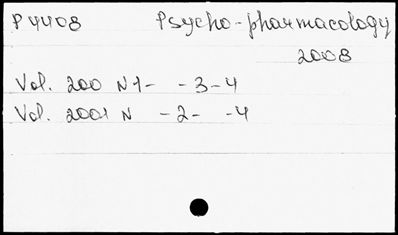 P4408 Psycho-pharmacology
2008
Vol. 200 N1- -3-4
Vol. 2001 N -2- -4